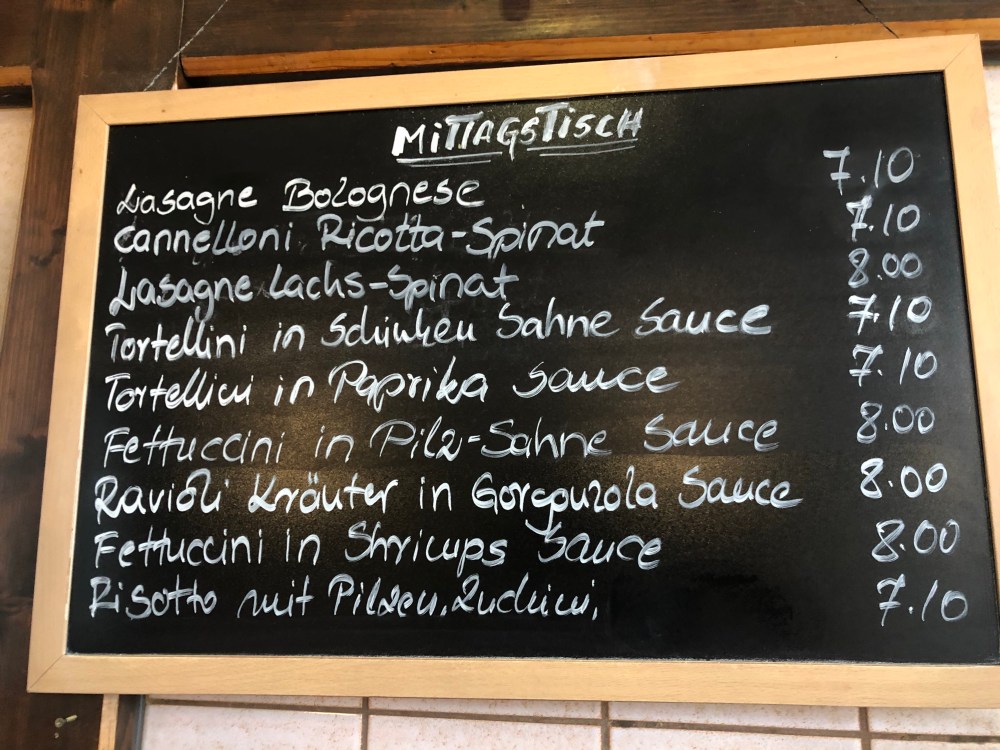 MITTAGSTISCH
Lasagne Bolognese 7.10
Cannelloni Ricotta-Spinat 7.10
Lasagne Lachs-Spinat 8.00
Tortellini in Schinken Sahne Sauce 7.10
Tortellini in Paprika Sauce 7.10
Fettuccini in Pilz-Sahne Sauce 8.00
Ravioli Kräuter in Gorgonzola Sauce 8.00
Fettuccini in Shrimps Sauce 8.00
Risotto mit Pilzen, Zuchini, 7.10